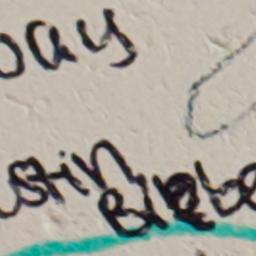 oay
ustin
Biebe